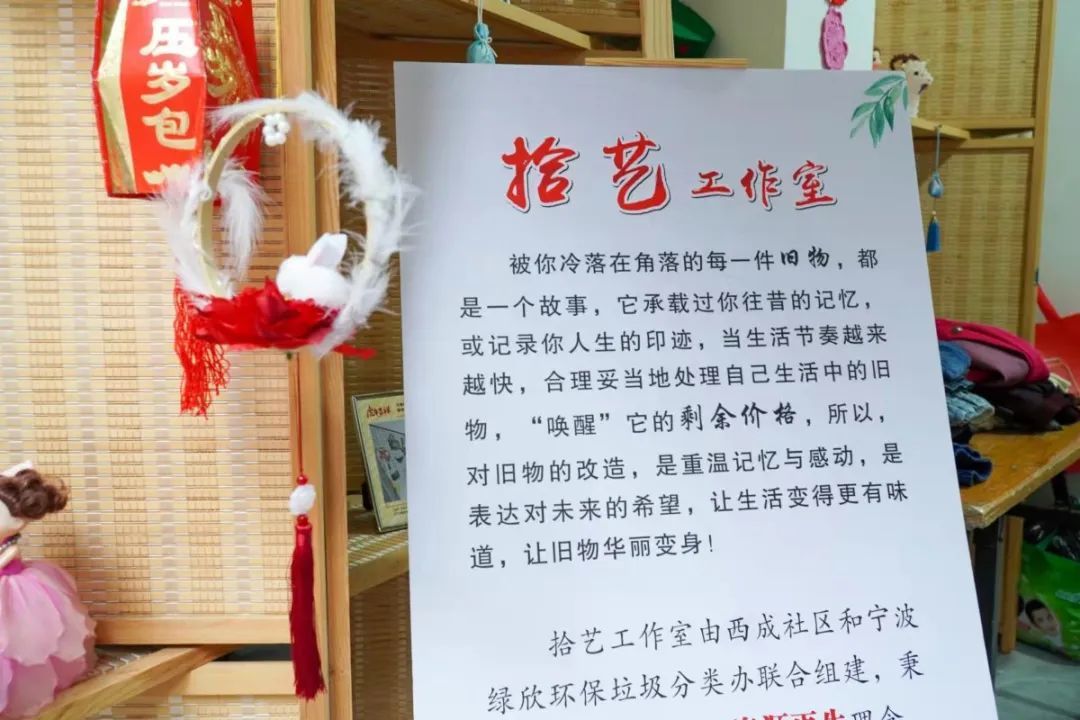 压岁包
拾艺工作室
被你冷落在角落的每一件旧物，都
是一个故事，它承载过你往昔的记忆，
或记录你人生的印迹，当生活节奏越来
越快，合理妥当地处理自己生活中的旧
物，“唤醒”它的剩余价格，所以，
对旧物的改造，是重温记忆与感动，是
表达对未来的希望，让生活变得更有味
道，让旧物华丽变身！
拾艺工作室由西成社区和宁波
绿欣环保垃圾分类办联合组建，秉
再生理念